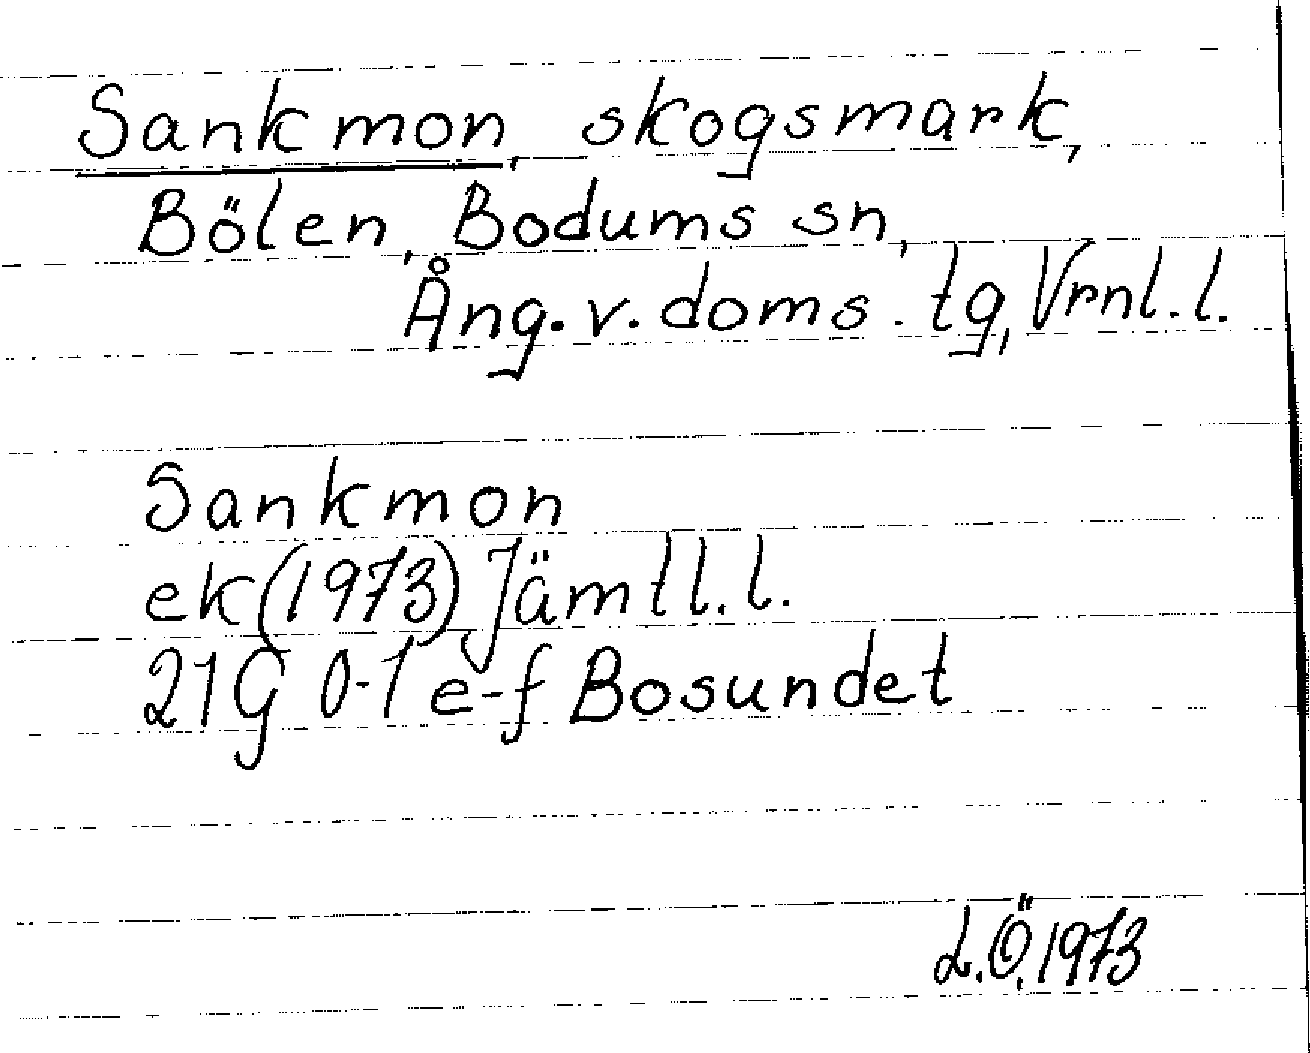 Sankmon, skogsmark,
Bölen, Bodums sn,
Ång. v. doms. tg, Vrnl. l.
Sankmon
ek (1973) Jämtl. l.
21G 0-1 e-f Bosundet
L.Ö. 1973